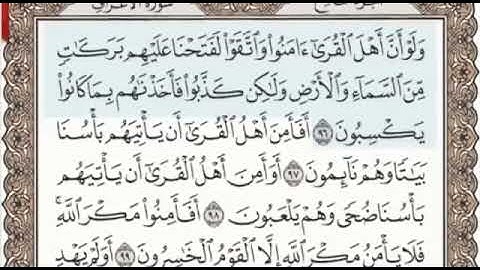 سورة الأعراف
وَلَوْ أَنَّ أَهْلَ ٱلْقُرَىٰٓ ءَامَنُوا۟ وَٱتَّقَوْا۟ لَفَتَحْنَا عَلَيْهِم بَرَكَٰتٍ
مِّنَ ٱلسَّمَآءِ وَٱلْأَرْضِ وَلَٰكِن كَذَّبُوا۟ فَأَخَذْنَٰهُم بِمَا كَانُوا۟
يَكْسِبُونَ ٩٦ أَفَأَمِنَ أَهْلُ ٱلْقُرَىٰٓ أَن يَأْتِيَهُم بَأْسُنَا
بَيَٰتًا وَهُمْ نَآئِمُونَ ٩٧ أَوَأَمِنَ أَهْلُ ٱلْقُرَىٰٓ أَن يَأْتِيَهُم
بَأْسُنَا ضُحًى وَهُمْ يَلْعَبُونَ ٩٨ أَفَأَمِنُوا۟ مَكْرَ ٱللَّهِ ۚ
فَلَا يَأْمَنُ مَكْرَ ٱللَّهِ إِلَّا ٱلْقَوْمُ ٱلْخَٰسِرُونَ ٩٩ أَوَلَمْ يَهْدِ